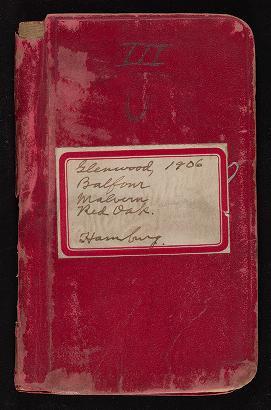 III
Glenwood, 1906
Balfour
Malvern
Red Oak.
Hamburg.